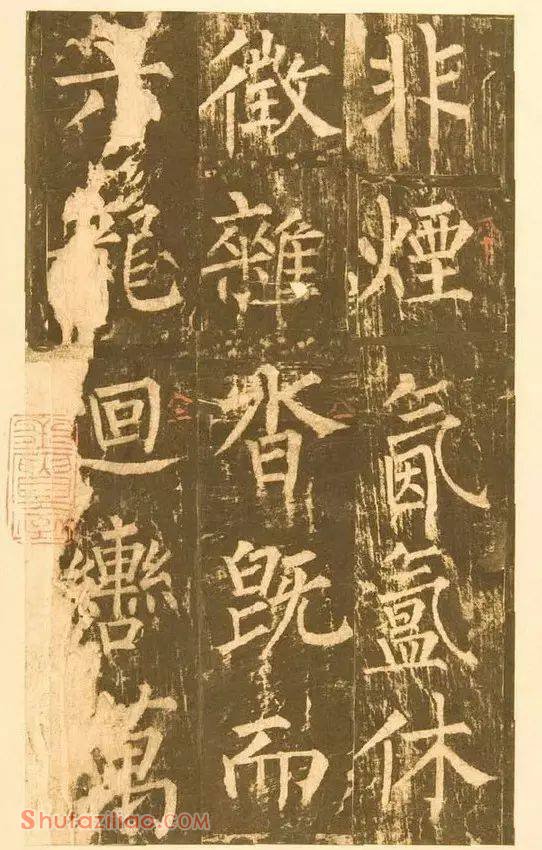 非煙氤氳休
徵雜沓既而
六龍迴轡萬
Shufaziliao.com